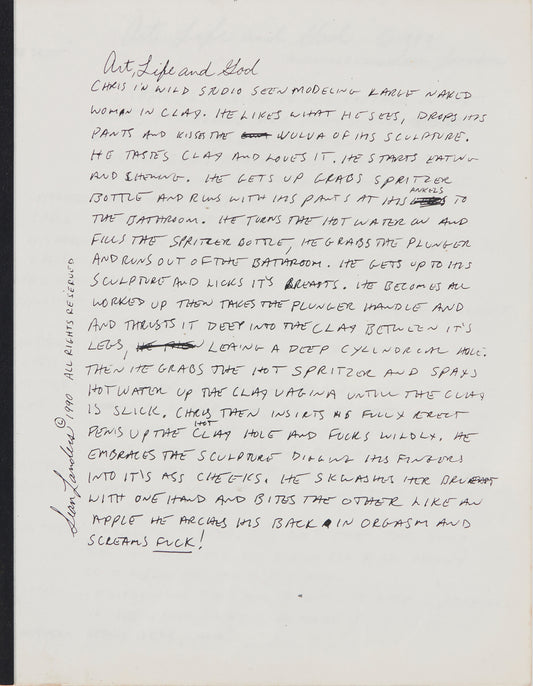 Art, Life and God
CHRIS IN WILD STUDIO SEEN MODELING LARGE NAKED
WOMAN IN CLAY. HE LIKES WHAT HE SEES, DROPS HIS
PANTS AND KISSES THE WULVA OF HIS SCULPTURE.
HE TASTES CLAY AND LOVES IT. HE STARTS EATING
AND CHEWING. HE GETS UP GRABS SPRITZER
BOTTLE AND RUNS WITH HIS PANTS AT HIS ANKELS TO
THE BATHROOM. HE TURNS THE HOT WATER ON AND
FILLS THE SPRITZER BOTTLE, HE GRABS THE PLUNGER
AND RUNS OUT OF THE BATHROOM. HE GETS UP TO HIS
SCULPTURE AND LICKS IT'S BREASTS. HE BECOMES ALL
WORKED UP THEN TAKES THE PLUNGER HANDLE AND
AND THRUSTS IT DEEP INTO THE CLAY BETWEEN IT'S
LEGS, LEAING A DEEP CYLINDRICAL HOLE.
THEN HE GRABS THE HOT SPRITZER AND SPAYS
HOT WATER UP THE CLAY VAGINA UNTILL THE CLAY
IS SLICK. CHRIS THEN INSIRTS HIS FULLY ERECT
PENIS UP THE HOT CLAY HOLE AND FUCKS WILDLY. HE
EMBRACES THE SCULPTURE DIGGING HIS FINGERS
INTO IT'S ASS CHEEKS. HE SKWASHES HER BREAST
WITH ONE HAND AND BITES THE OTHER LIKE AN
APPLE HE ARCHES HIS BACK IN ORGASM AND
SCREAMS FUCK!
Sean Landers © 1990 ALL RIGHTS RESERVED